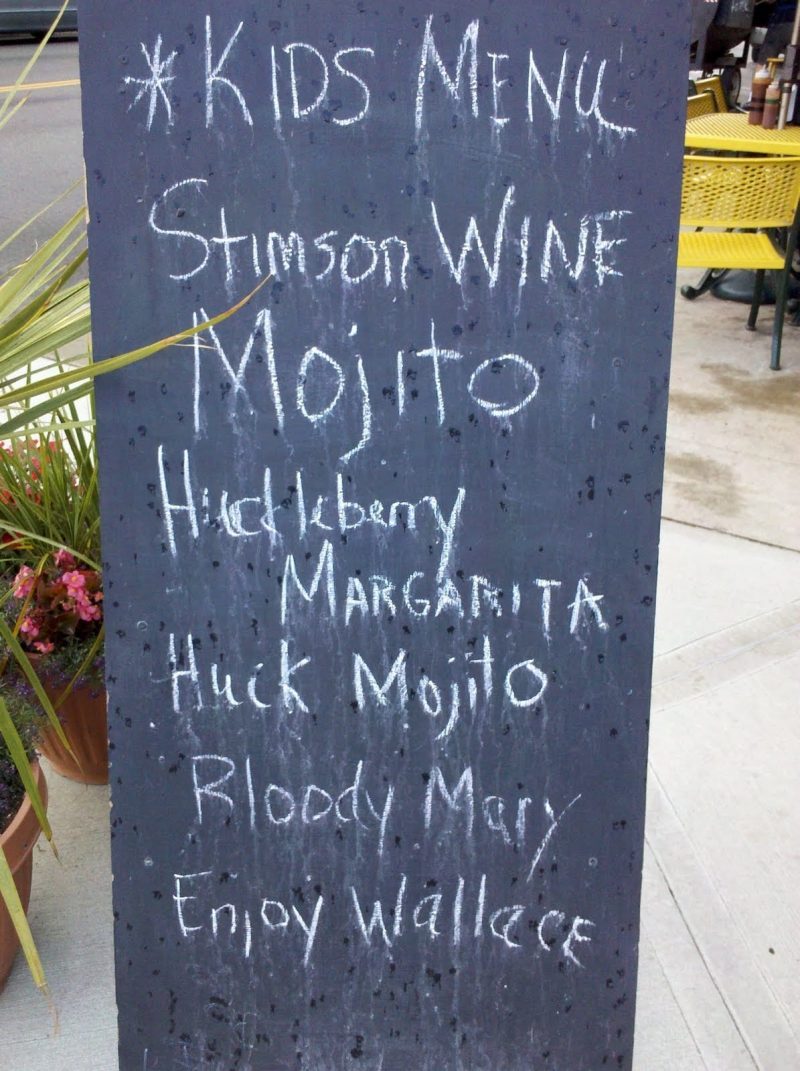 *KIDS MENU
Stimson WINE
Mojito
Huckleberry
MARGARITA
Huck Mojito
Bloody Mary
Enjoy Wallace